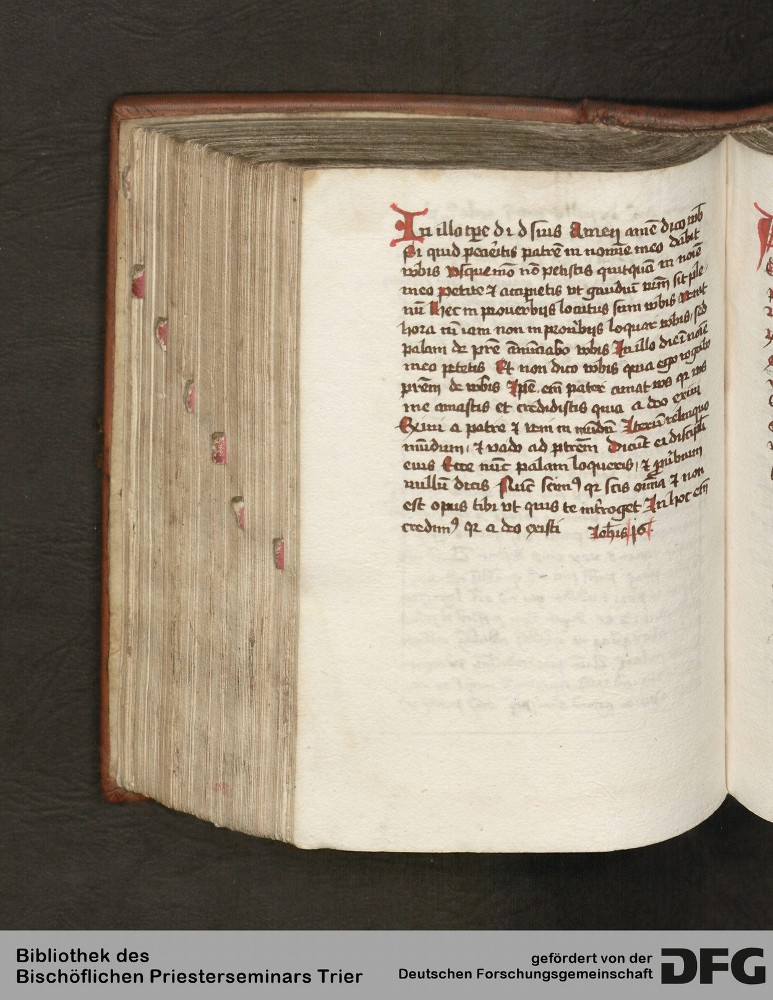 In illo tpe di d suis Amen amē dico vob
Si quid petieritis patrē in nomīe meo dabit
vobis vsque mō nō petistis quitquā in noīe
meo petite & accipietis vt gaudiū vr̄m sit ple
nū Hec in prouerbijs locutus sum vobis venit
hora cū iam non in prouerbijs loquar vobis sed
palam de pr̄e ānūciabo vobis In illo die ī noīe
meo petetis Et non dico vobis quia ego rogabo
pr̄em de vobis Ip̄e em̄ pater amat vos qr vos
me amastis et credidistis quia a deo exiui
Exiui a patre & veni in mūdū Iterū relinquo
mūdum & vado ad p̄trēm Dicūt ei discipli
eius Ecce nūc palam loqueris & puerbium
nullū dicis Nūc scimꝰ qr scis omīa & non
est opus tibi vt quis te īnt̄roget In hoc em̄
credimꝰ qr a deo existi Joh̄is 16
Bibliothek des
Bischöflichen Priesterseminars Trier
gefördert von der
Deutschen Forschungsgemeinschaft
DFG